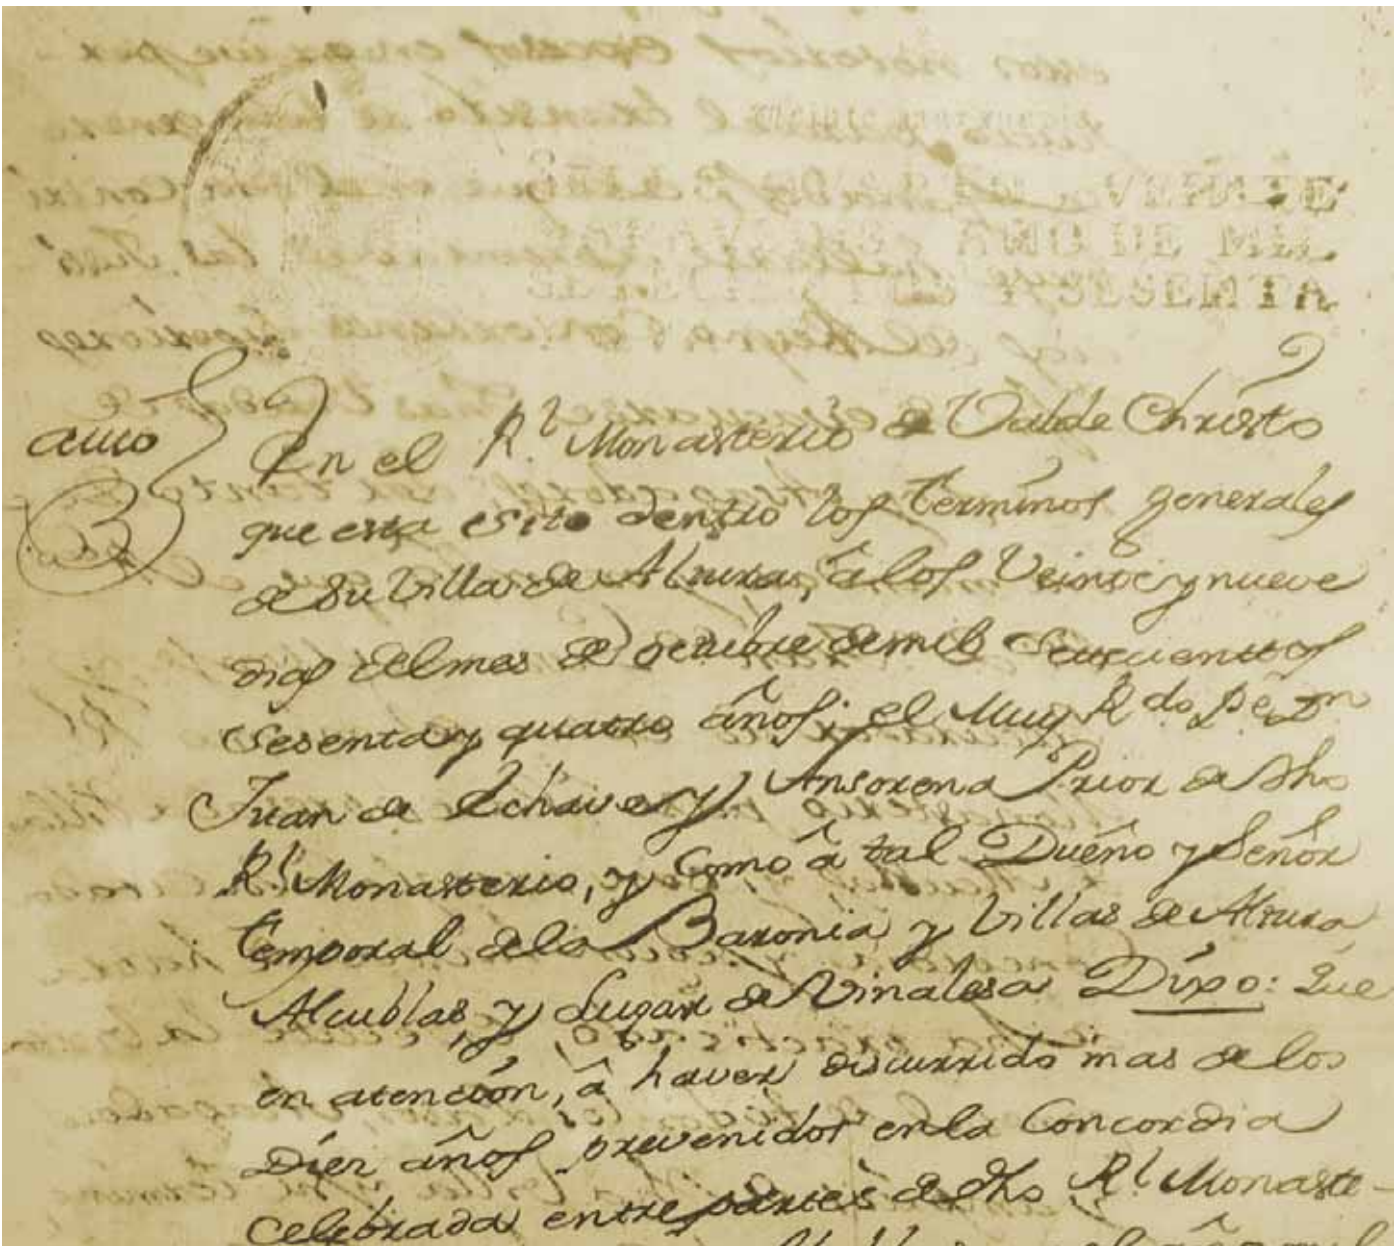 VEINTE
AÑO DE MIL
Y SESENTA
auto
En el R.l Monasterio de Valde Christo
que esta csito dentro los terminos generales
de su Villa de Altura, â los Veinte y nueve
dias del mes de octubre de mil Setecientos
Sesenta y quatro años; el Muy R.do P.e D.n
Juan de Echave y Ansorena Prior de dho
R.l Monasterio, y Como â tal Dueño y Señor
temporal dela Baronia y Villas de Altura,
Alcublas, y Lugar de Vinalesa Dixo: Que
en atención, â haver discurrido mas de los
Diez años prevenidos en la Concordia
Celebrada entre partes de dho R.l Monaste-